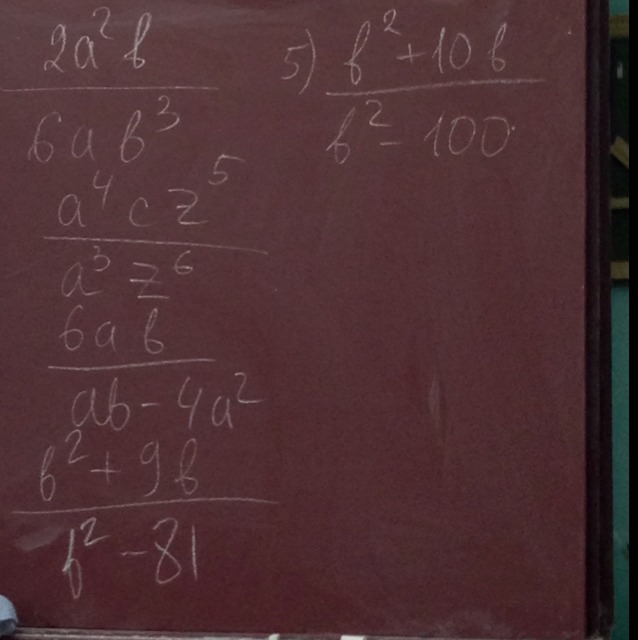 2a²b
6ab³
a⁴cz⁵
a³z⁶
6ab
ab - 4a²
b² + 9b
b² - 81
5) b² + 10b
b² - 100